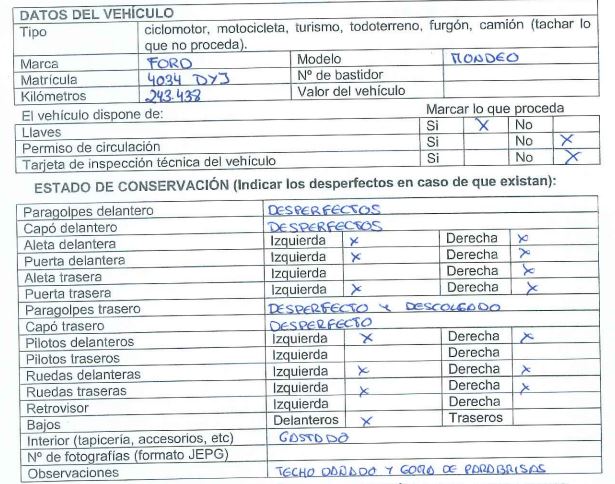 DATOS DEL VEHÍCULO
Tipo ciclomotor, motocicleta, turismo, todoterreno, furgón, camión (tachar lo
que no proceda).
Marca FORD Modelo MONDEO
Matrícula 4034 DYJ Nº de bastidor
Kilómetros 243.438 Valor del vehículo
El vehículo dispone de: Marcar lo que proceda
Llaves Si X No
Permiso de circulación Si No X
Tarjeta de inspección técnica del vehículo Si No X
ESTADO DE CONSERVACIÓN (Indicar los desperfectos en caso de que existan):
Paragolpes delantero DESPERFECTOS
Capó delantero DESPERFECTOS
Aleta delantera Izquierda X Derecha X
Puerta delantera Izquierda X Derecha X
Aleta trasera Izquierda Derecha X
Puerta trasera Izquierda X Derecha X
Paragolpes trasero DESPERFECTO Y DESCOLGADO
Capó trasero DESPERFECTO
Pilotos delanteros Izquierda X Derecha X
Pilotos traseros Izquierda Derecha
Ruedas delanteras Izquierda X Derecha X
Ruedas traseras Izquierda X Derecha X
Retrovisor Izquierda Derecha
Bajos Delanteros X Traseros
Interior (tapicería, accesorios, etc) GASTADO
Nº de fotografías (formato JEPG)
Observaciones TECHO DAÑADO Y GOMA DE PARABRISAS